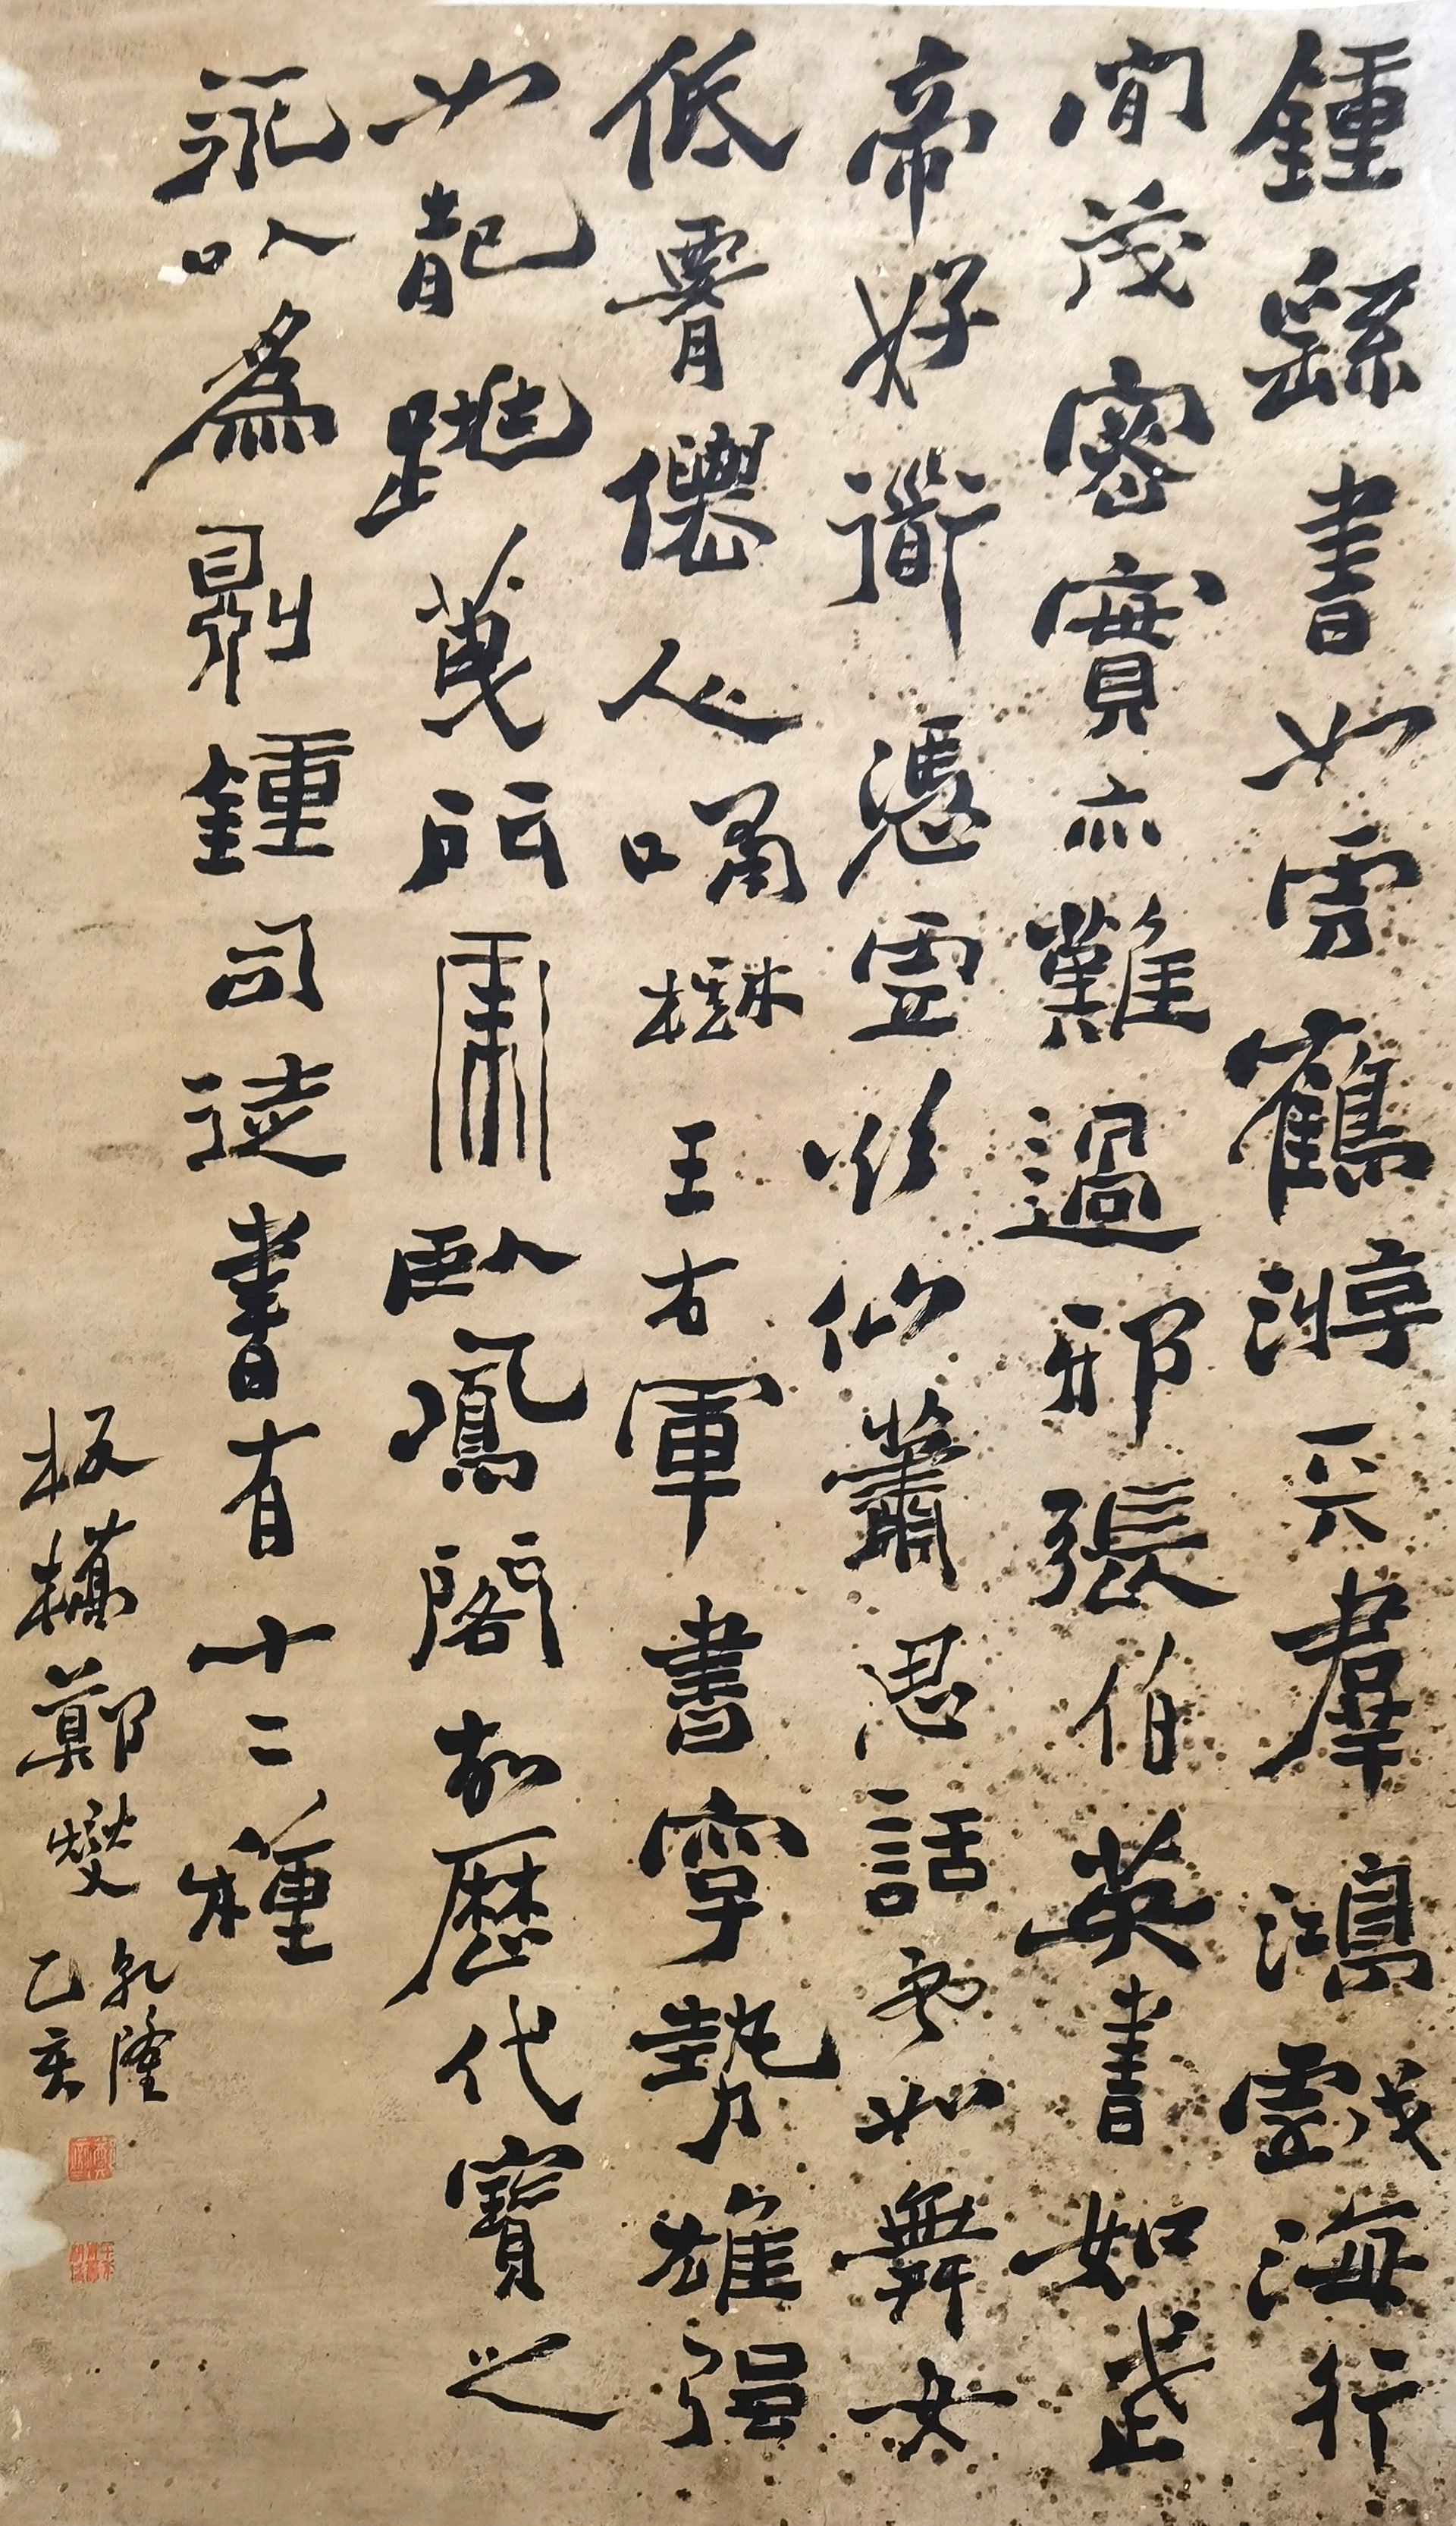 鍾繇書如雲鶴游天羣鴻戲海行
間茂密實亦難過邪張伯英書如武
帝好道憑虛欲仙蕭思話書如舞女
低腰儒人嘯樹王右軍書字勢雄强
如龍跳天門虎臥鳳閣故歷代寶之
永以爲訓鍾司徒書有十二種
板橋鄭燮
乾隆
乙亥